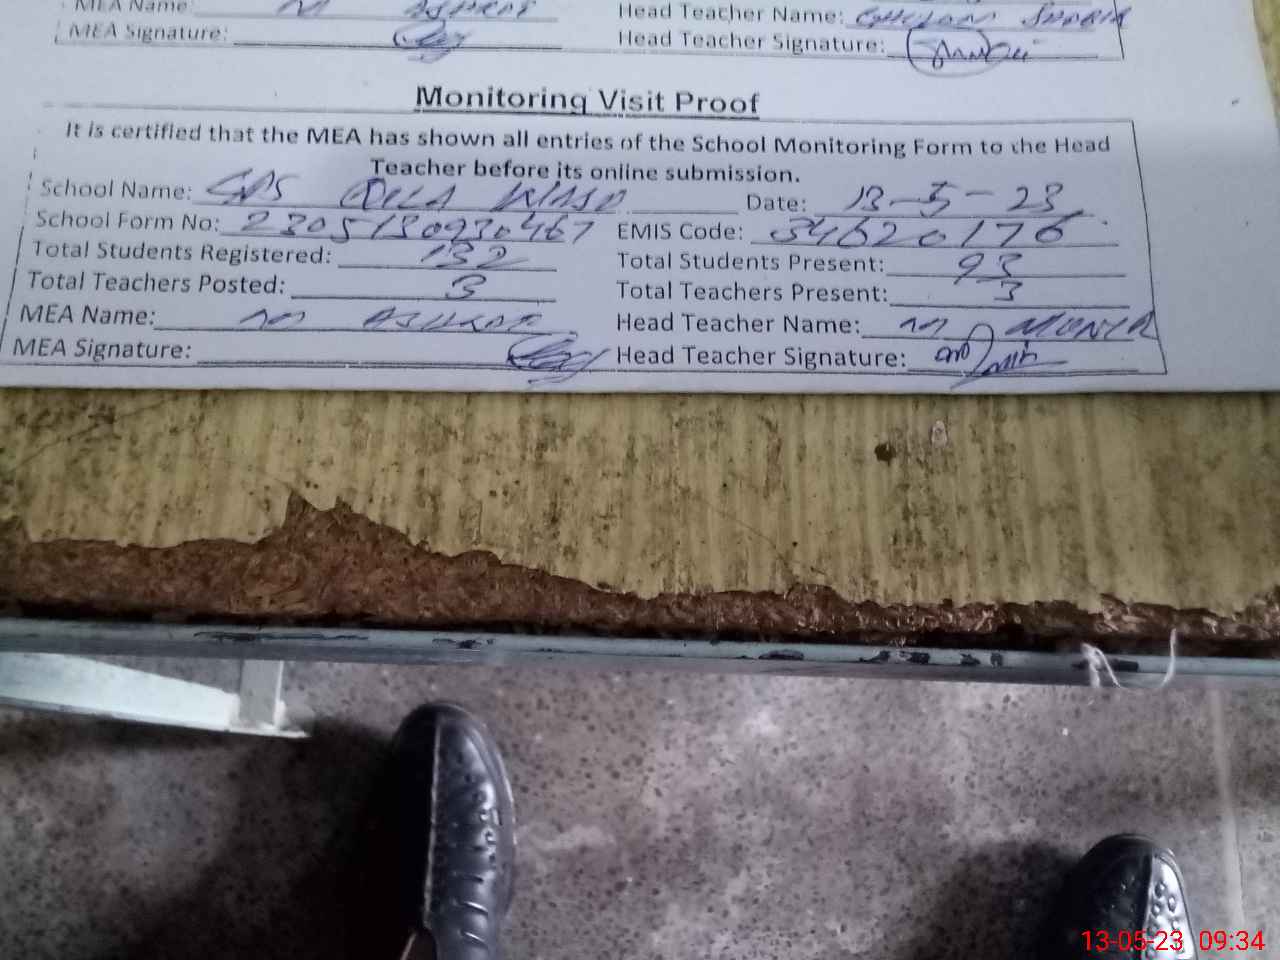 MEA Name: M ASHRAF Head Teacher Name: GHULAM SHABIR
MEA Signature: Head Teacher Signature:
Monitoring Visit Proof
It is certified that the MEA has shown all entries of the School Monitoring Form to the Head
Teacher before its online submission.
School Name: GPS QILA WASD Date: 13-5-23
School Form No: 2305130930467 EMIS Code: 34620176
Total Students Registered: 132 Total Students Present: 93
Total Teachers Posted: 3 Total Teachers Present: 3
MEA Name: M ASHRAF Head Teacher Name: M MONIR
MEA Signature: Head Teacher Signature:
13-05-23 09:34